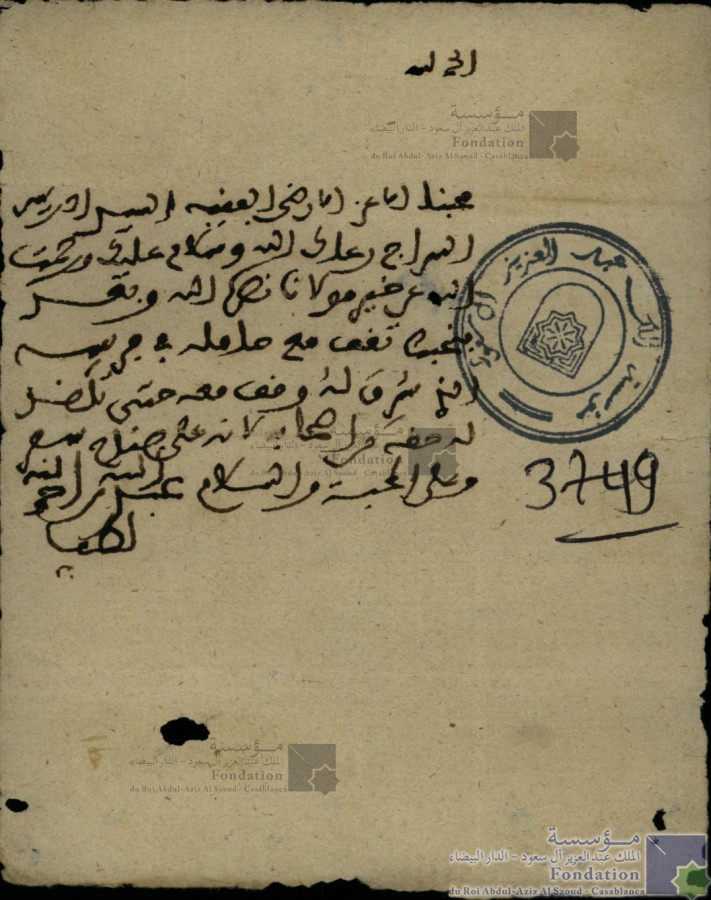 الحمد لله
مؤسسة
الملك عبد العزيز آل سعود - الدار البيضاء
Fondation
du Roi Abdul-Aziz Al Saoud - Casablanca
محبنا الأعز الأرضى الفقيه السيد ادريس
السراج رعاك الله وسلام عليك ورحمت
الله عن خير مولانا نصره الله وبعد
تقف مع حامله في
الذي سرق له وقف معه حتى
له حقه من
وعلى المحبة والسلام
لطف
3749
مؤسسة الملك عبد العزيز آل سعود
مؤسسة
الملك عبد العزيز آل سعود - الدار البيضاء
Fondation
du Roi Abdul-Aziz Al Saoud - Casablanca
مؤسسة
الملك عبد العزيز آل سعود - الدار البيضاء
Fondation
du Roi Abdul-Aziz Al Saoud - Casablanca
مؤسسة
الملك عبد العزيز آل سعود - الدار البيضاء
Fondation
du Roi Abdul-Aziz Al Saoud - Casablanca